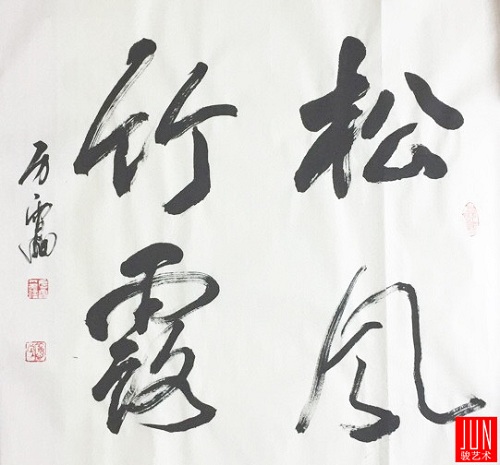 松风
竹露
JUN
骏艺术